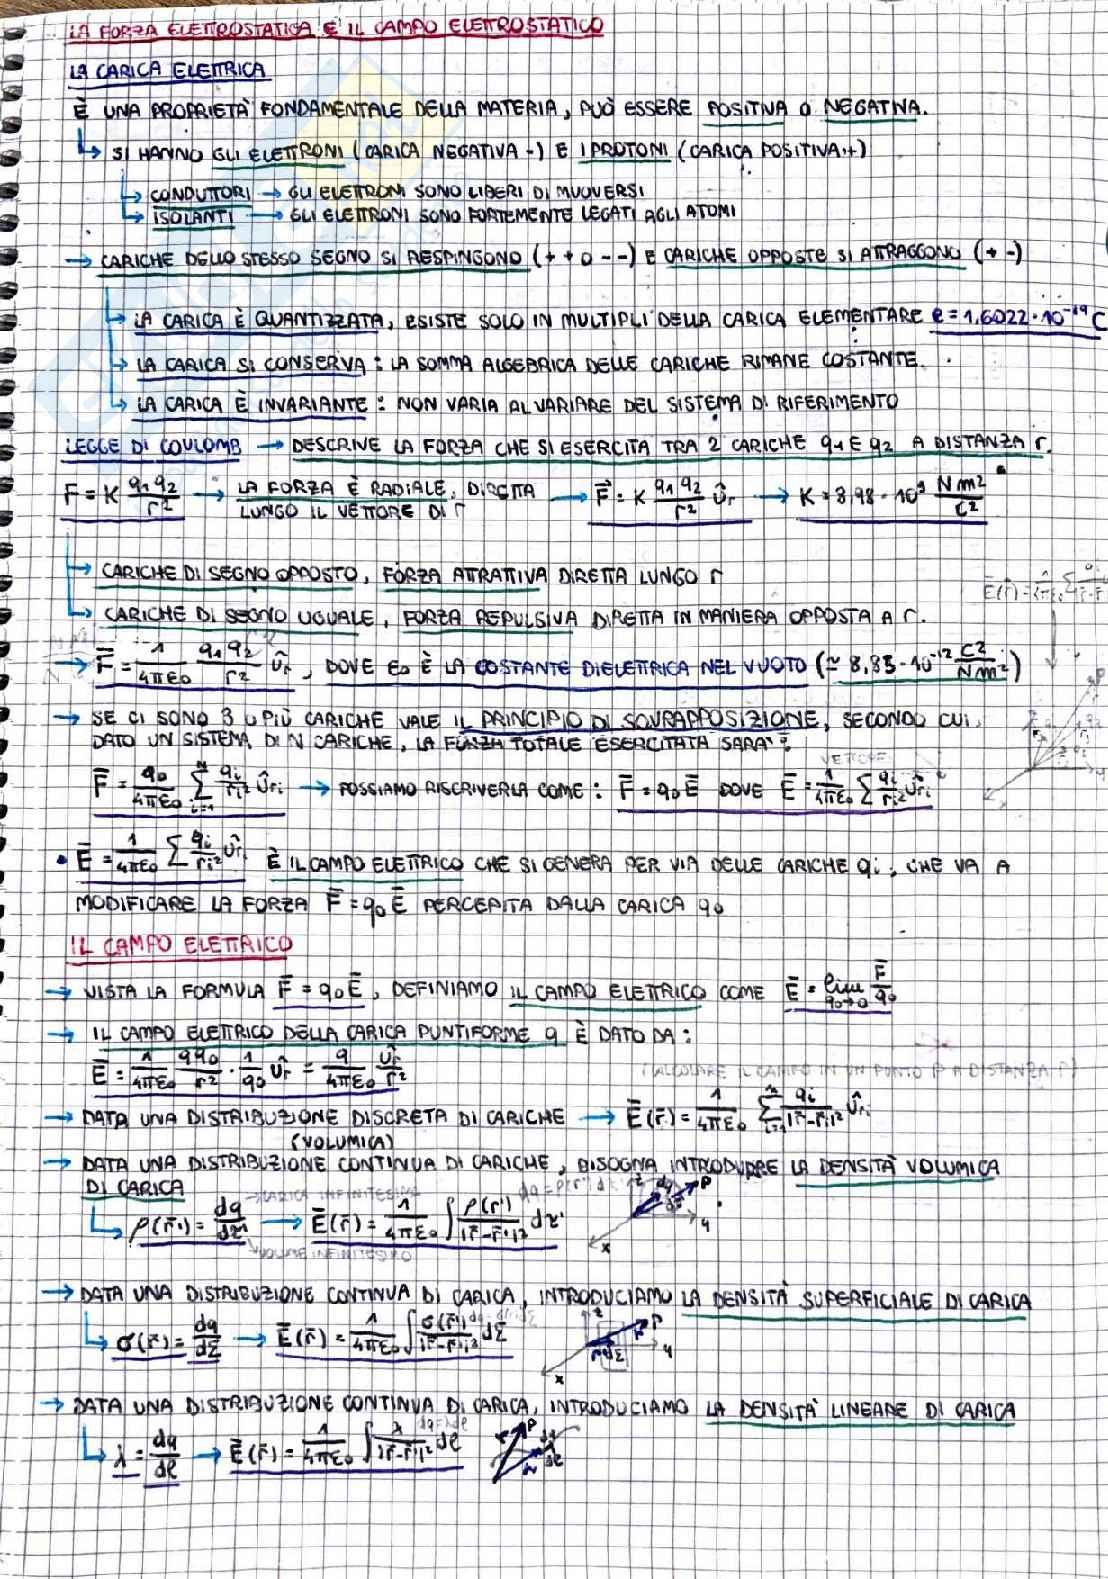 LA FORZA ELETTROSTATICA E IL CAMPO ELETTROSTATICO
LA CARICA ELETTRICA
È UNA PROPRIETÀ FONDAMENTALE DELLA MATERIA, PUÒ ESSERE POSITIVA O NEGATIVA.
↳ SI HANNO GLI ELETTRONI (CARICA NEGATIVA -) E I PROTONI (CARICA POSITIVA +)
↳ CONDUTTORI → GLI ELETTRONI SONO LIBERI DI MUOVERSI
↳ ISOLANTI → GLI ELETTRONI SONO FORTEMENTE LEGATI AGLI ATOMI
→ CARICHE DELLO STESSO SEGNO SI RESPINGONO (+ + O - -) E CARICHE OPPOSTE SI ATTRAGGONO (+ -)
↳ LA CARICA È QUANTIZZATA, ESISTE SOLO IN MULTIPLI DELLA CARICA ELEMENTARE e = 1,6022 · 10⁻¹⁹ C
↳ LA CARICA SI CONSERVA : LA SOMMA ALGEBRICA DELLE CARICHE RIMANE COSTANTE.
↳ LA CARICA È INVARIANTE : NON VARIA AL VARIARE DEL SISTEMA DI RIFERIMENTO
LEGGE DI COULOMB → DESCRIVE LA FORZA CHE SI ESERCITA TRA 2 CARICHE q₁ E q₂ A DISTANZA r.
F = K q₁q₂/r² → LA FORZA È RADIALE, DIRETTA LUNGO IL VETTORE DI r → F⃗ = K q₁q₂/r² û_r → K = 8,98 · 10⁹ Nm²/C²
↳ CARICHE DI SEGNO OPPOSTO, FORZA ATTRATTIVA DIRETTA LUNGO r
↳ CARICHE DI SEGNO UGUALE, FORZA REPULSIVA DIRETTA IN MANIERA OPPOSTA A r.
→ F̄ = 1/4πε₀ q₁q₂/r² û_r, DOVE ε₀ È LA COSTANTE DIELETTRICA NEL VUOTO (≃ 8,85 · 10⁻¹² C²/Nm²)
→ SE CI SONO 3 O PIÙ CARICHE VALE IL PRINCIPIO DI SOVRAPPOSIZIONE, SECONDO CUI,
DATO UN SISTEMA DI N CARICHE, LA FORZA TOTALE ESERCITATA SARA' :
VETTORE
F̄ = q₀/4πε₀ Σ_{i=1}^{N} qᵢ/rᵢ² û_ri → POSSIAMO RISCRIVERLA COME : F̄ = q₀Ē DOVE Ē = 1/4πε₀ Σ qᵢ/rᵢ² û_ri
• Ē = 1/4πε₀ Σ qᵢ/rᵢ² û_ri È IL CAMPO ELETTRICO CHE SI GENERA PER VIA DELLE CARICHE qᵢ, CHE VA A
MODIFICARE LA FORZA F̄ = q₀Ē PERCEPITA DALLA CARICA q₀
IL CAMPO ELETTRICO
→ VISTA LA FORMULA F̄ = q₀Ē, DEFINIAMO IL CAMPO ELETTRICO COME Ē = lim_{q₀→0} F̄/q₀
→ IL CAMPO ELETTRICO DELLA CARICA PUNTIFORME q È DATO DA :
Ē = 1/4πε₀ qq₀/r² · 1/q₀ û_r = q/4πε₀ û_r/r²
(CALCOLARE IL CAMPO IN UN PUNTO P A DISTANZA r)
→ DATA UNA DISTRIBUZIONE DISCRETA DI CARICHE → Ē(r̄) = 1/4πε₀ Σ_{i=1}^{n} qᵢ/|r̄-r̄ᵢ|² û_ri
(VOLUMICA)
→ DATA UNA DISTRIBUZIONE CONTINUA DI CARICHE, BISOGNA INTRODURRE LA DENSITÀ VOLUMICA
DI CARICA
→ CARICA INFINITESIMA
↳ ρ(r̄') = dq/dτ' → Ē(r̄) = 1/4πε₀ ∫ ρ(r')/|r̄-r̄'|² dτ'
→ VOLUME INFINITESIMO
z dq P dτ y x
→ DATA UNA DISTRIBUZIONE CONTINUA DI CARICA, INTRODUCIAMO LA DENSITÀ SUPERFICIALE DI CARICA
↳ σ(r̄) = dq/dΣ → Ē(r̄) = 1/4πε₀ ∫ σ(r̄')/|r̄-r̄'|² dΣ
z P dΣ y x
→ DATA UNA DISTRIBUZIONE CONTINUA DI CARICA, INTRODUCIAMO LA DENSITÀ LINEARE DI CARICA
dq = λdℓ
↳ λ = dq/dℓ → Ē(r̄) = 1/4πε₀ ∫ λ/|r̄-r̄'|² dℓ
r P dq dℓ